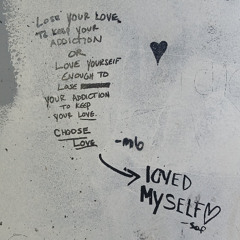 LOSE YOUR LOVE
TO KEEP YOUR
ADDICTION
OR
LOVE YOURSELF
ENOUGH TO
LOSE
YOUR ADDICTION
TO KEEP
YOUR LOVE.
CHOOSE
LOVE
-mb
I LOVED
MYSELF♡